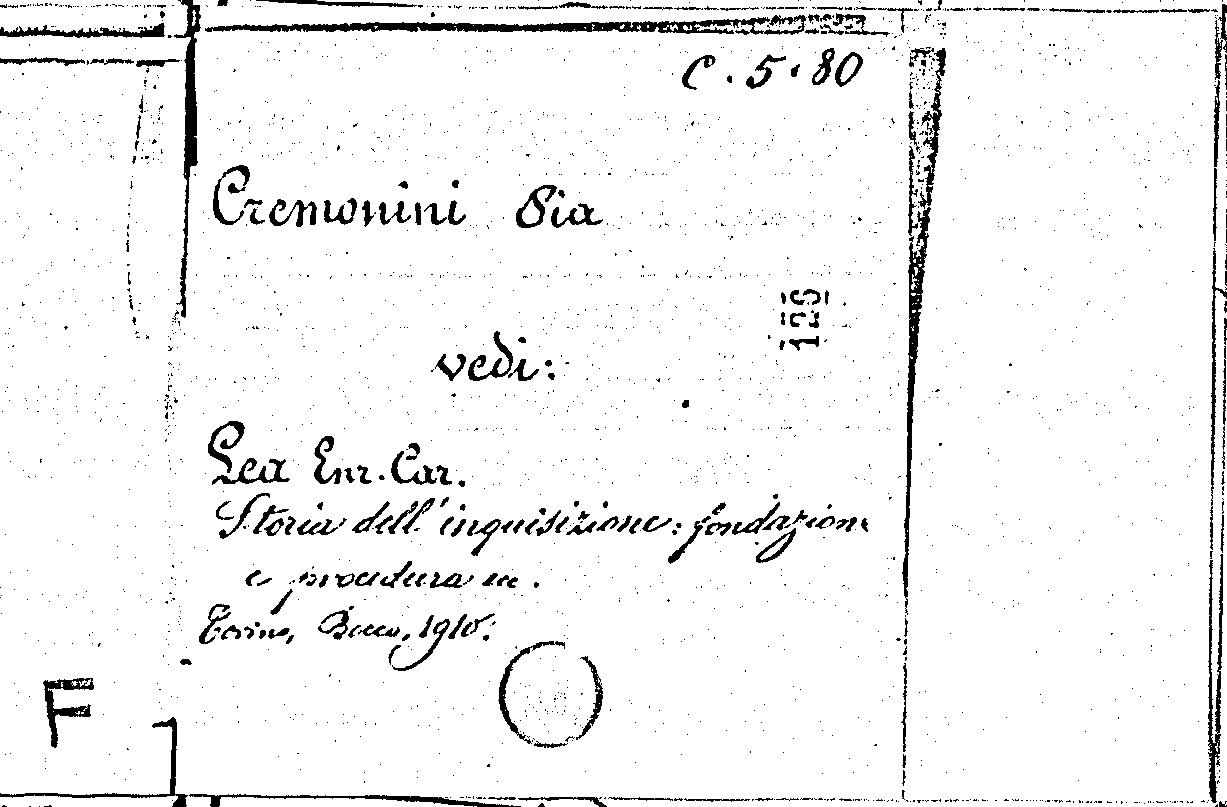 C. 5. 80
Cremonini Pia
126
vedi:
Lea Enr. Car.
Storia dell'inquisizione: fondazione
e procedura ec.
Torino, Bocca, 1910.
F